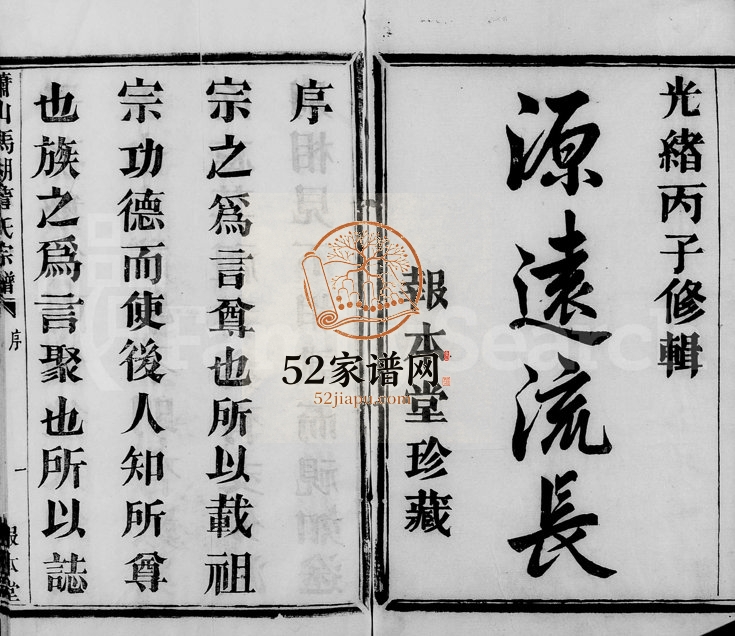 光緒丙子修輯
源遠流長
報本堂珍藏
序
宗之爲言尊也所以載祖
宗功德而使後人知所尊
也族之爲言聚也所以誌
序
一
報本堂
52家谱网
52jiapu.com
FamilySearch